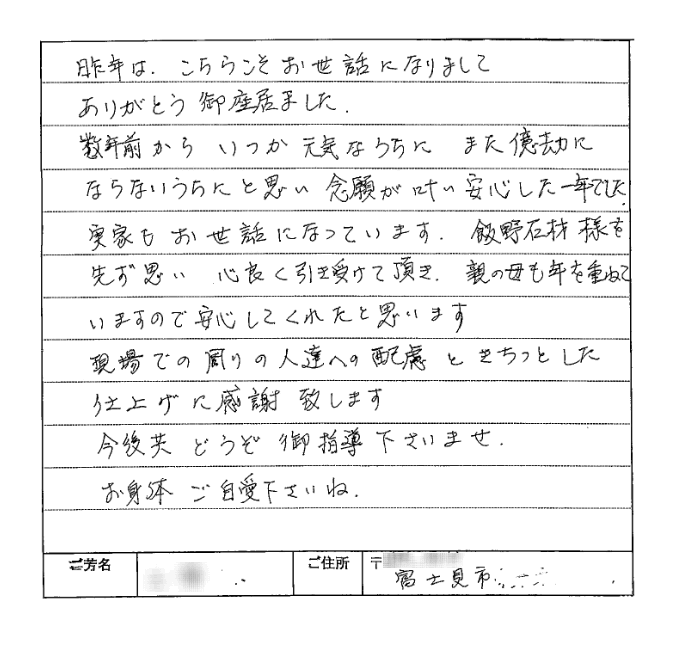 昨年は、こちらこそお世話になりまして
ありがとう御座居ました.
数年前から いつか元気なうちに また億劫に
ならないうちにと思い 念願が叶い安心した一年でした.
実家もお世話になっています. 飯野石材様を
先ず思い 心良く引き受けて頂き. 親の母も年を重ねて
いますので安心してくれたと思います
現場での周りの人達への配慮ときちっとした
仕上げに感謝致します
今後共どうぞ御指導下さいませ.
お身体ご自愛下さいね.
ご芳名
ご住所 〒
富士見市